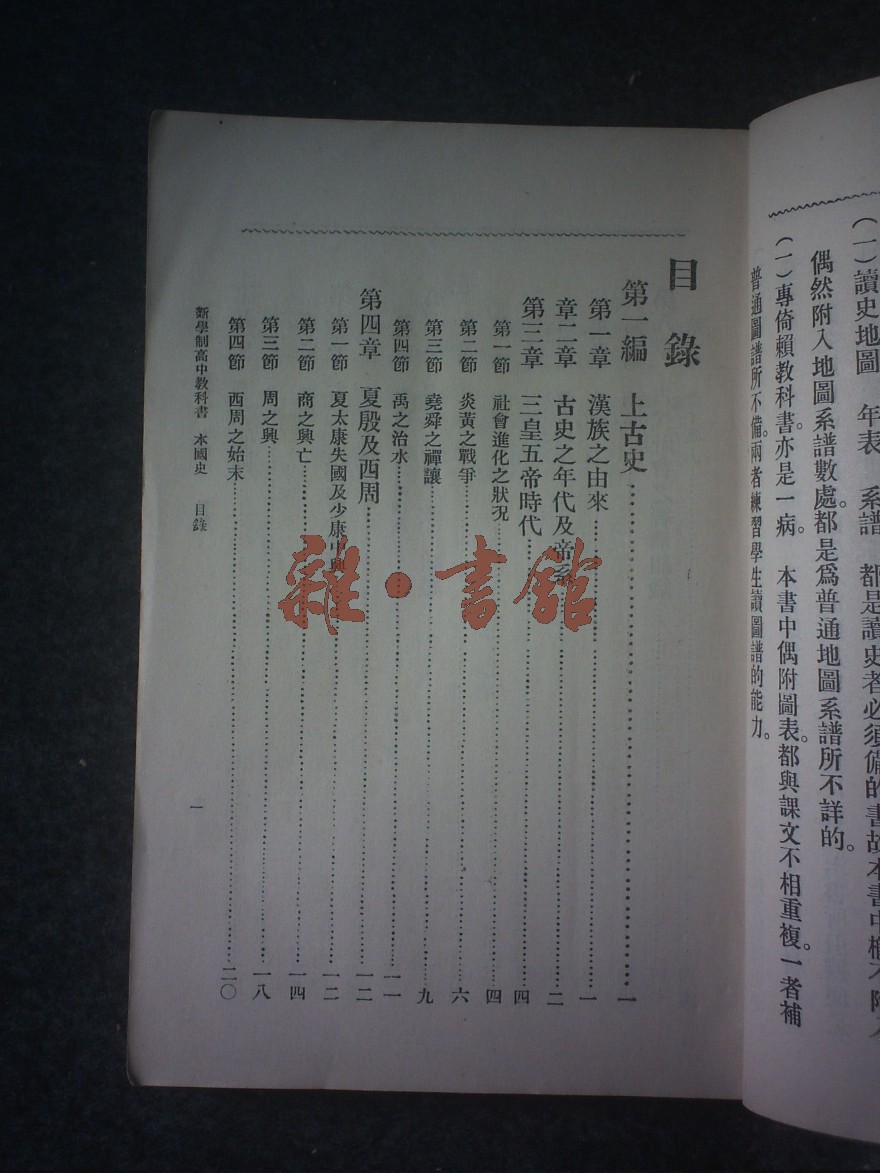 (一)讀史地圖 年表 系譜 都是讀史者必須備的書故本書中概不附入
偶然附入地圖系譜數處。都是爲普通地圖系譜所不詳的。
(一)專倚賴教科書。亦是一病。 本書中偶附圖表。都與課文不相重複。一者補
普通圖譜所不備。兩者練習學生讀圖譜的能力。
目錄
第一編 上古史……一
第一章 漢族之由來……一
章二章 古史之年代及帝系……二
第三章 三皇五帝時代……四
第一節 社會進化之狀況……四
第二節 炎黃之戰爭……六
第三節 堯舜之禪讓……九
第四節 禹之治水……一一
第四章 夏殷及西周……一二
第一節 夏太康失國及少康中興……一二
第二節 商之興亡……一四
第三節 周之興……一八
第四節 西周之始末……二〇
新學制高中教科書 本國史 目錄
一
雜·書館